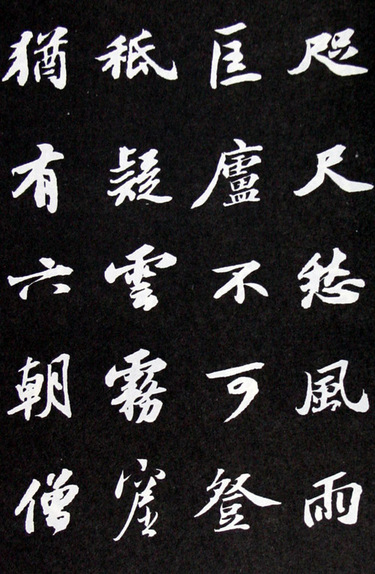 咫尺愁風雨
匡廬不可登
秪疑雲霧窟
猶有六朝僧